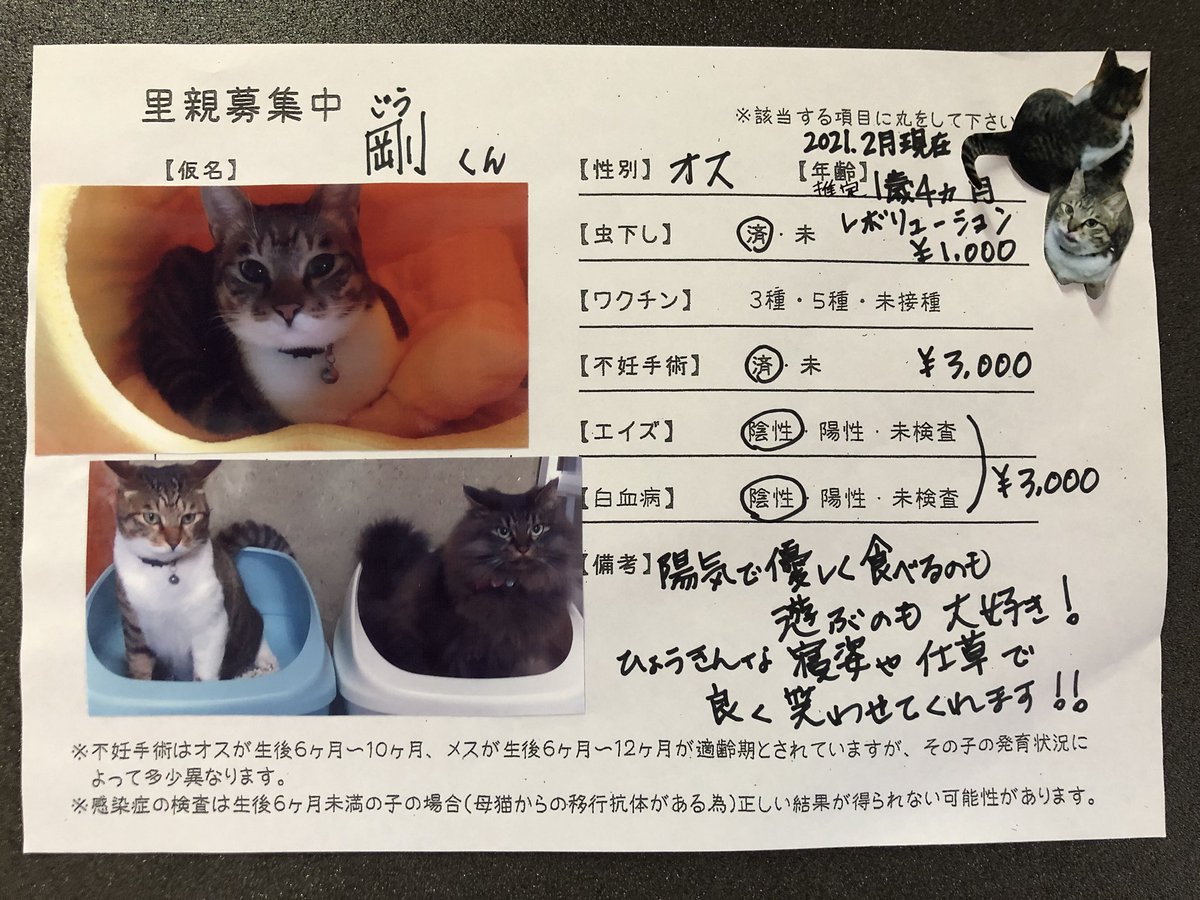 里親募集中
ごう
【仮名】 剛 くん
※該当する項目に丸をして下さい
2021.2月現在
【性別】 オス 【年齢】 推定 1歳4ヵ月
【虫下し】 済・未 レボリューション
¥1.000
【ワクチン】 3種・5種・未接種
【不妊手術】 済・未 ¥3,000
【エイズ】 陰性・陽性・未検査
¥3,000
【白血病】 陰性・陽性・未検査
【備考】 陽気で優しく食べるのも
遊ぶのも大好き!
ひょうきんな寝姿や仕草で
良く笑わせてくれます!!
※不妊手術はオスが生後6ヶ月〜10ヶ月、メスが生後6ヶ月〜12ヶ月が適齢期とされていますが、その子の発育状況に
よって多少異なります。
※感染症の検査は生後6ヶ月未満の子の場合(母猫からの移行抗体がある為)正しい結果が得られない可能性があります。